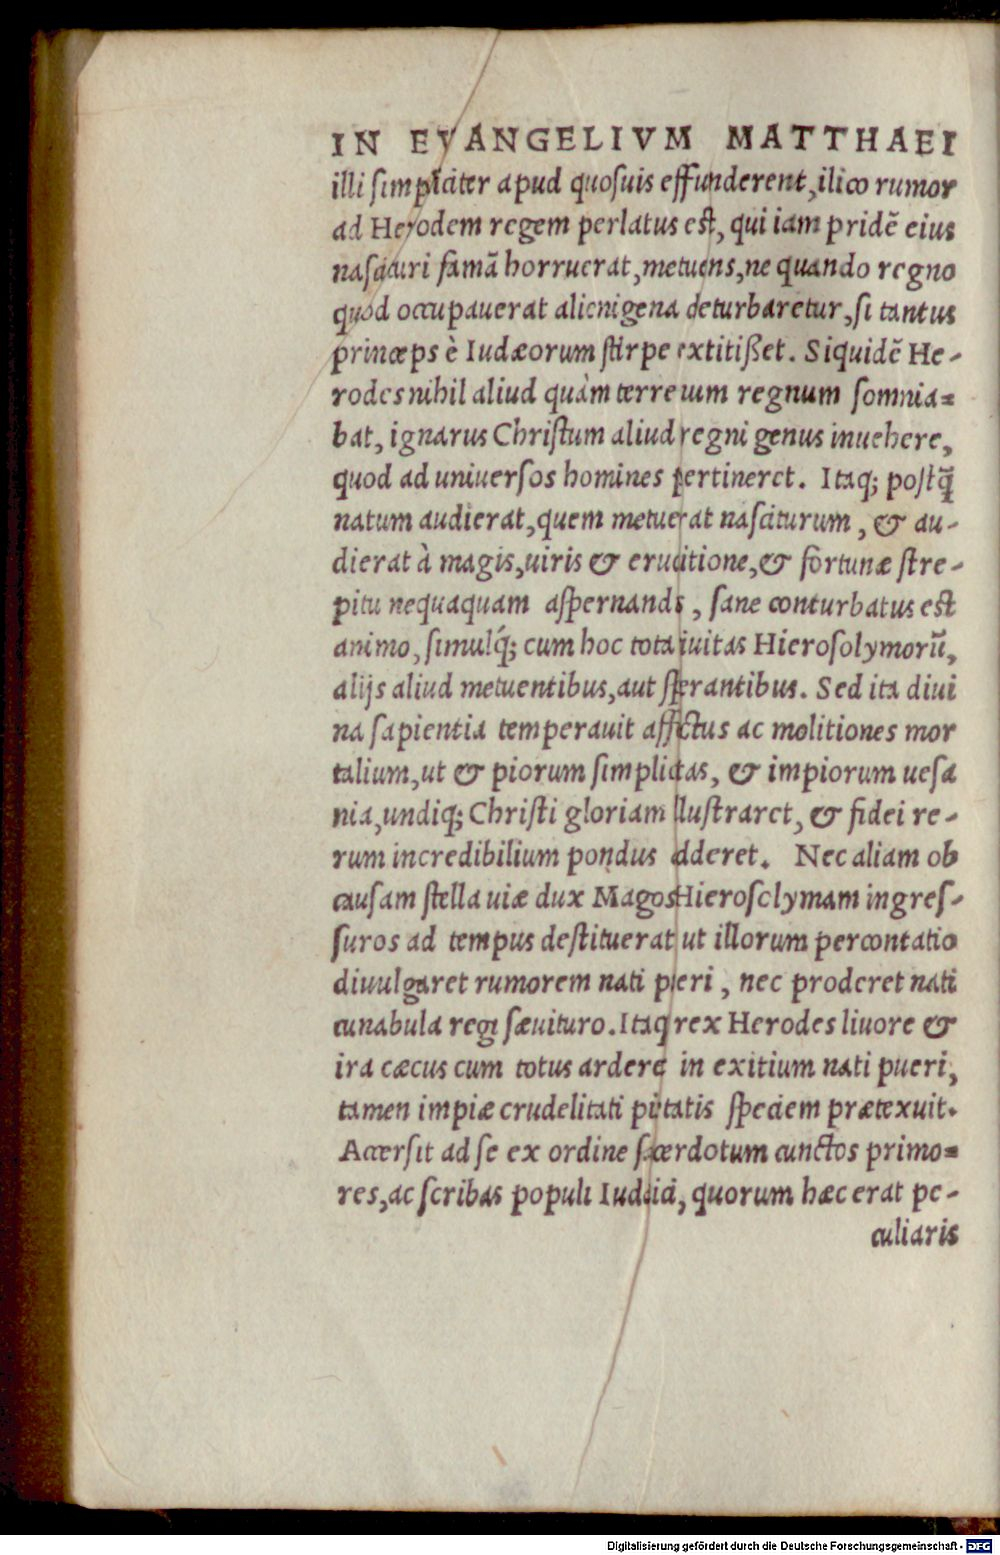 IN EVANGELIVM MATTHAEI
illi simpliciter apud quosuis effunderent, ilico rumor
ad Herodem regem perlatus est, qui iam pridē eius
nascituri famā horruerat, metuens, ne quando regno
quod occupauerat alienigena deturbaretur, si tantus
princeps è Iudæorum stirpe extitißet. Siquidē He-
rodes nihil aliud quàm terrenum regnum somnia=
bat, ignarus Christum aliud regni genus inuehere,
quod ad uniuersos homines pertineret. Itaq; postq̄
natum audierat, quem metuerat nasciturum, & au-
dierat à magis, uiris & eruditione, & fortunæ stre-
pitu nequaquam aspernandis, sane conturbatus est
animo, simulq́; cum hoc tota ciuitas Hierosolymorū,
alijs aliud metuentibus, aut sperantibus. Sed ita diui
na sapientia temperauit affectus ac molitiones mor
talium, ut & piorum simplicitas, & impiorum uesa
nia, undiq; Christi gloriam illustraret, & fidei re-
rum incredibilium pondus adderet. Nec aliam ob
causam stella uiæ dux Magos Hierosolymam ingres-
suros ad tempus destituerat ut illorum percontatio
diuulgaret rumorem nati pueri, nec proderet nati
cunabula regi sæuituro. Itaq rex Herodes liuore &
ira cæcus cum totus arderet in exitium nati pueri,
tamen impiæ crudelitati pietatis speciem prætexuit.
Accersit ad se ex ordine sacerdotum cunctos primo=
res, ac scribas populi Iudaici, quorum hæc erat pe-
culiaris
Digitalisierung gefördert durch die Deutsche Forschungsgemeinschaft - DFG